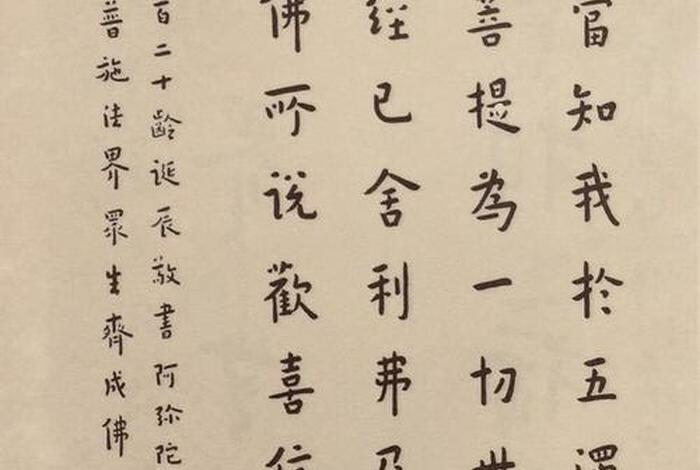 當知我於五濁
菩提為一切世
經已舍利弗及
佛所說歡喜信
百二十齡誕辰敬書阿弥陀
普施法界眾生齊成佛